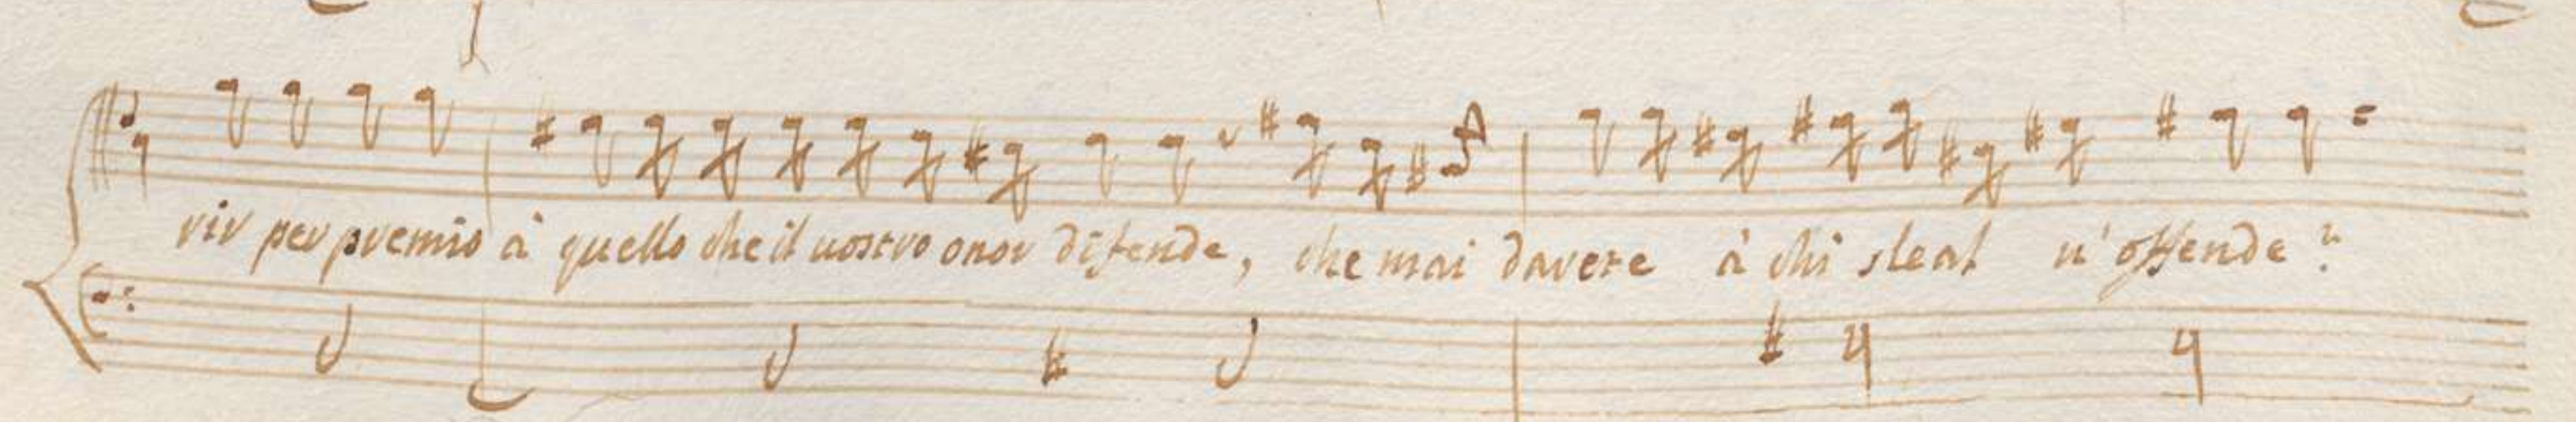 rir per premio à quello che il uostro onor difende, che mai davete à chi sleal u' offende?